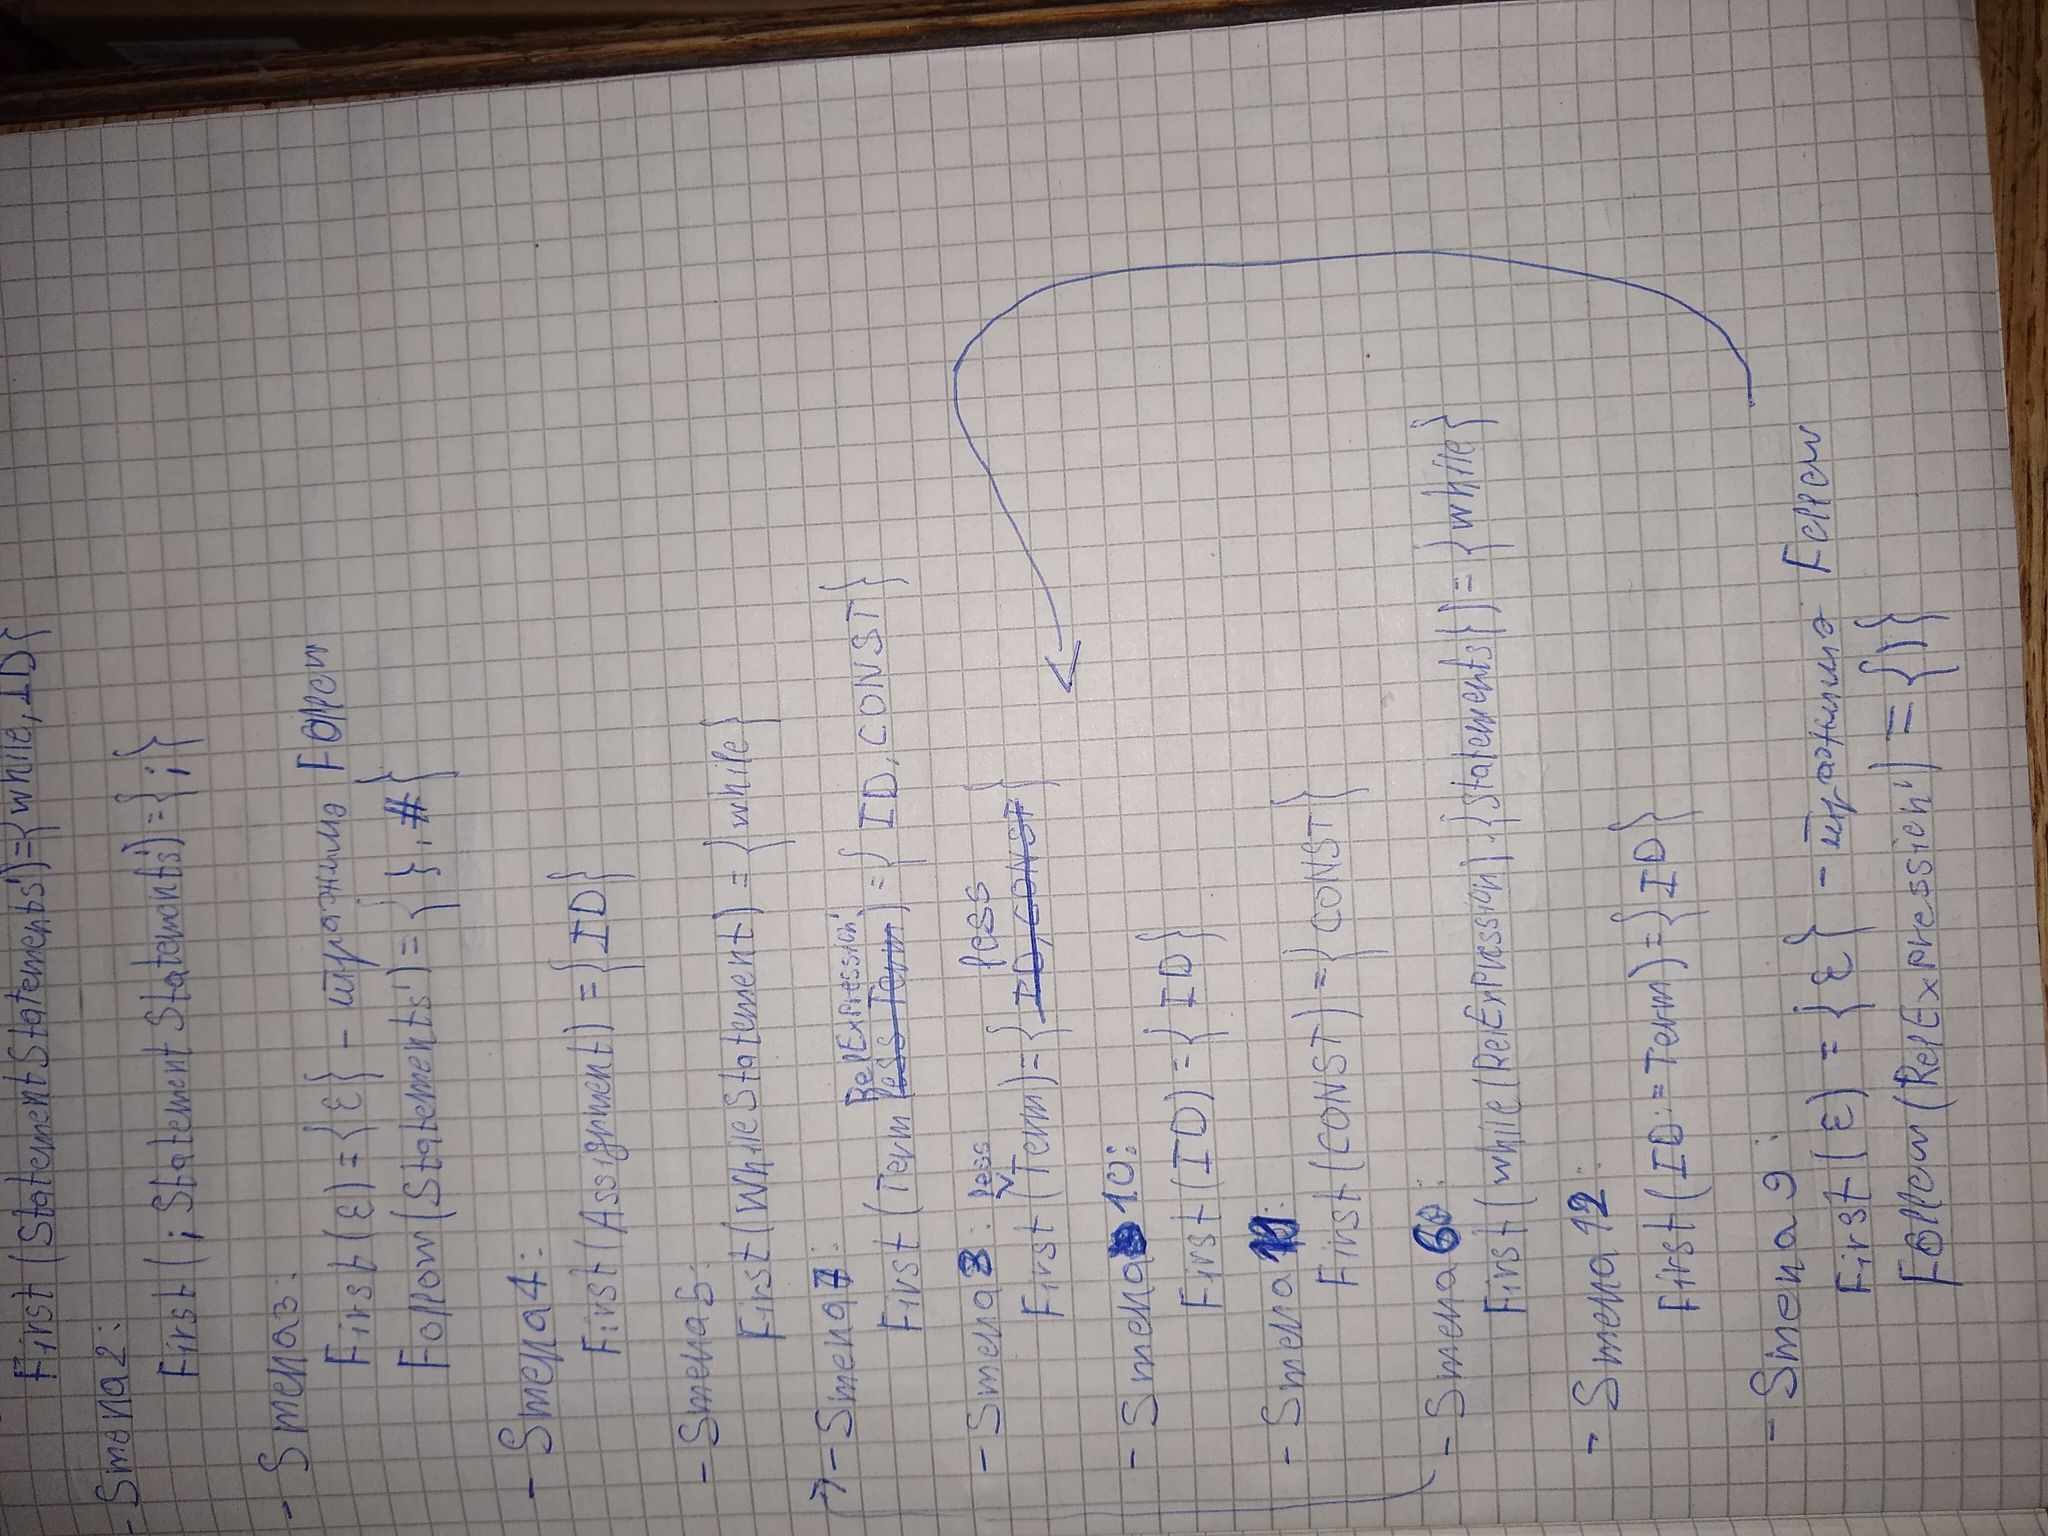 First (Statement Statements') = {while, ID}
- Smena 2:
First (; Statement Statements') = {;}
- Smena 3:
First (ε) = {ε} - тражимо Follow
Follow (Statements') = { }, # }
- Smena 4:
First (Assignment) = {ID}
- Smena 5:
First (WhileStatement) = {while}
→ - Smena 7:
RelExpression'
First (Term less Term) = {ID, CONST}
- Smena 8: less
less
First (Term) = {ID, CONST}
- Smena 10:
First (ID) = {ID}
- Smena 11:
First (CONST) = {CONST}
- Smena 6:
First (while (RelExpression) {Statements}) = {while}
- Smena 12:
First (ID := Term) = {ID}
- Smena 9:
First (ε) = {ε} - тражимо Follow
Follow (RelExpression') = {)}